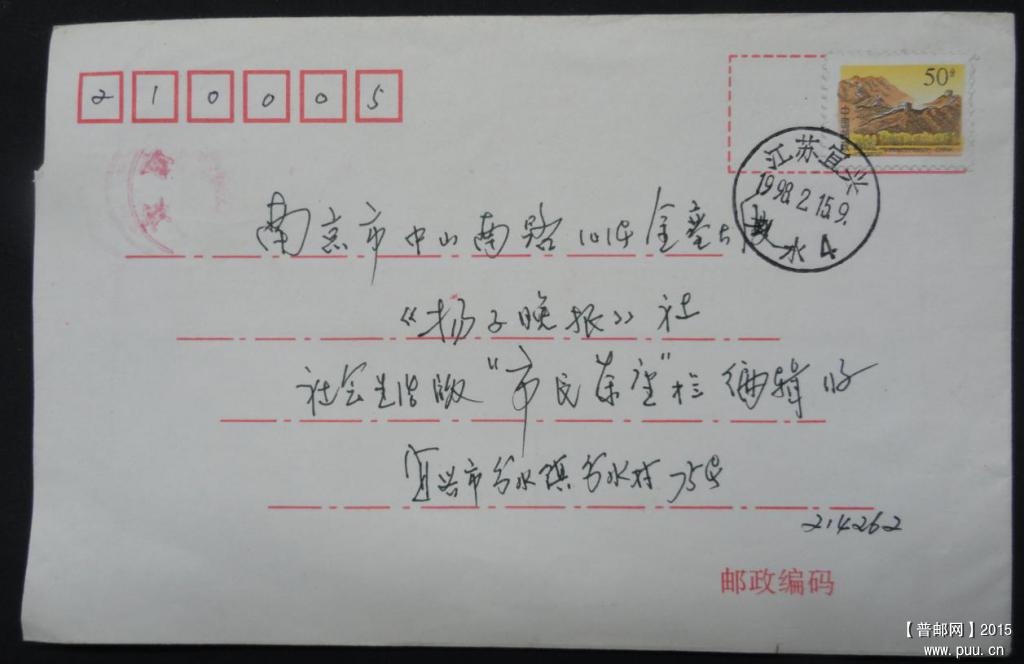 210005
50分
江苏宜兴
1998.2.15.9.
分水4
南京市中山南路101号金銮大厦
《扬子晚报》社
社会生活版“市民茶座”栏编辑收
宜兴市分水镇分水村75号
214262
邮政编码
【普邮网】2015
www.puu.cn